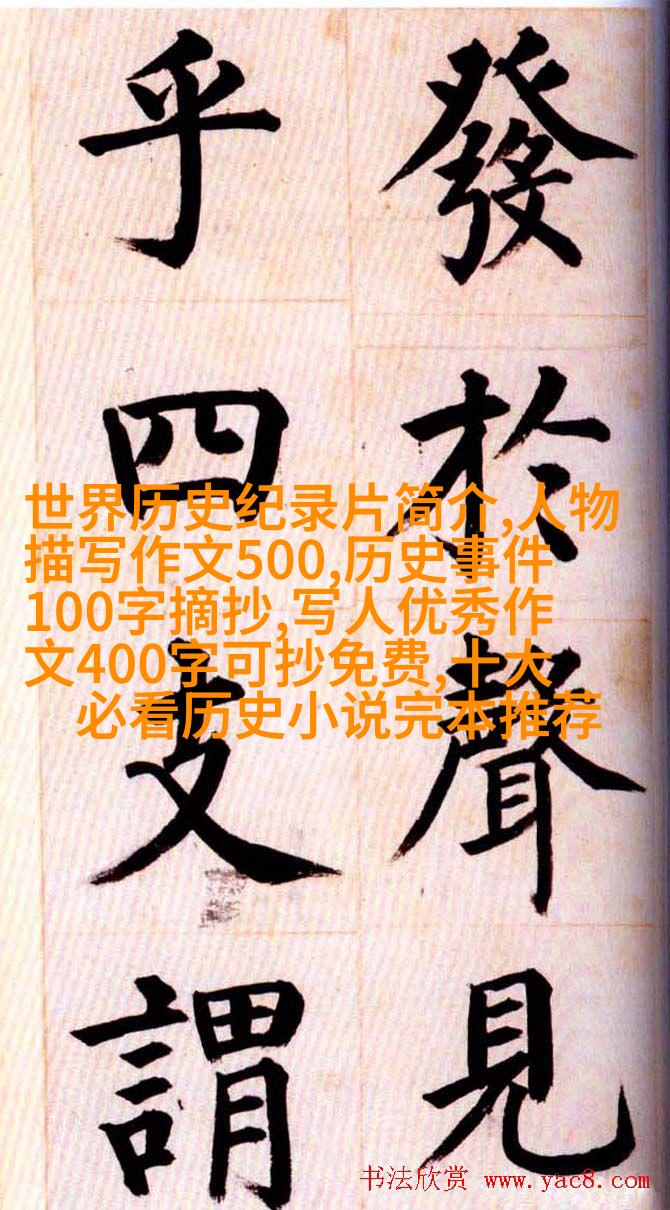 發於聲見
乎四支謂
世界历史纪录片简介,人物
描写作文500,历史事件
100字摘抄,写人优秀作
文400字可抄免费,十大
必看历史小说完本推荐
书法欣赏 www.yac8.com